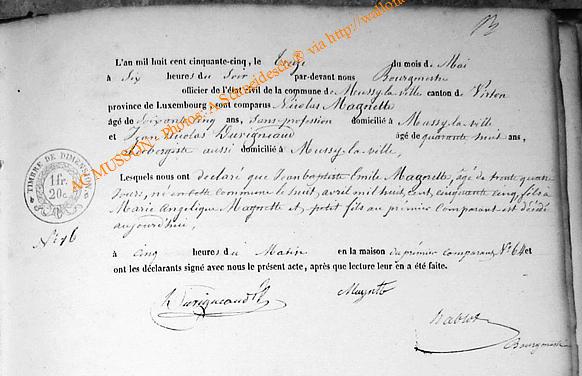 L'an mil huit cent cinquante-cinq, le treize du mois de Mai
à six heures du soir par-devant nous Bourgmestre
officier de l'état civil de la commune de Mussy-la-ville canton de Virton
province de Luxembourg sont comparus Nicolas Magnette
âgé de soixante cinq ans, sans profession domicilié à Mussy-la-ville
et Jean Nicolas Duvigneaud âgé de quarante huit ans,
aubergiste aussi domicilié à Mussy-la-ville,
Lesquels nous ont déclaré que Jeanbaptiste Emile Magnette, âgé de trente quatre
jours, né en cette commune le huit, avril mil huit, cent, cinquante cinq, fils à
Marie Angelique Magnette et petit fils au prémier Comparant est décédé
aujourd'hui,
à cinq heures du Matin en la maison du prémier comparant N° 64 et
ont les déclarants signé avec nous le présent acte, après que lecture leur en a été faite.
TIMBRE DE DIMENSION
1 fr.
20 c.
N° 16
Duvigneaud
Magnette
Bourgmestre
AC MUSSON Photos: A. Schneidesch® via http://wallon